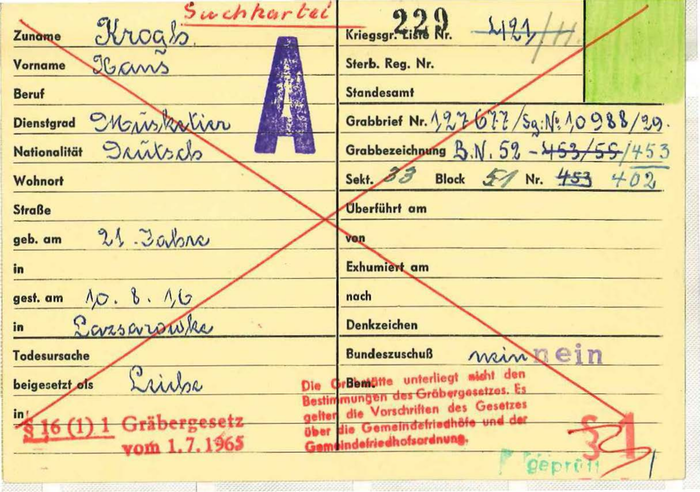 Suchkartei
Zuname Krogh
Vorname Hans
Beruf
Dienstgrad Musketier
Nationalität Deutsch
Wohnort
Straße
geb. am 21 Jahre
in
gest. am 10.8.16
in Lazsarowke
Todesursache
beigesetzt als Leiche
in
§ 16 (1) 1 Gräbergesetz
vom 1.7.1965
A
229
Kriegsgr. Liste Nr. 421/11.
Sterb. Reg. Nr.
Standesamt
Grabbrief Nr. 127677/Sg.N:10988/29.
Grabbezeichnung B.N. 52 - 453/55/453
Sekt. 33 Block 51 Nr. 453 402
Überführt am
von
Exhumiert am
nach
Denkzeichen
Bundeszuschuß nein nein
Bem.
Die Grabstätte unterliegt nicht den
Bestimmungen des Gräbergesetzes. Es
gelten die Vorschriften des Gesetzes
über die Gemeindefriedhöfe und der
Gemeindefriedhofsordnung.
§ 1
geprüft